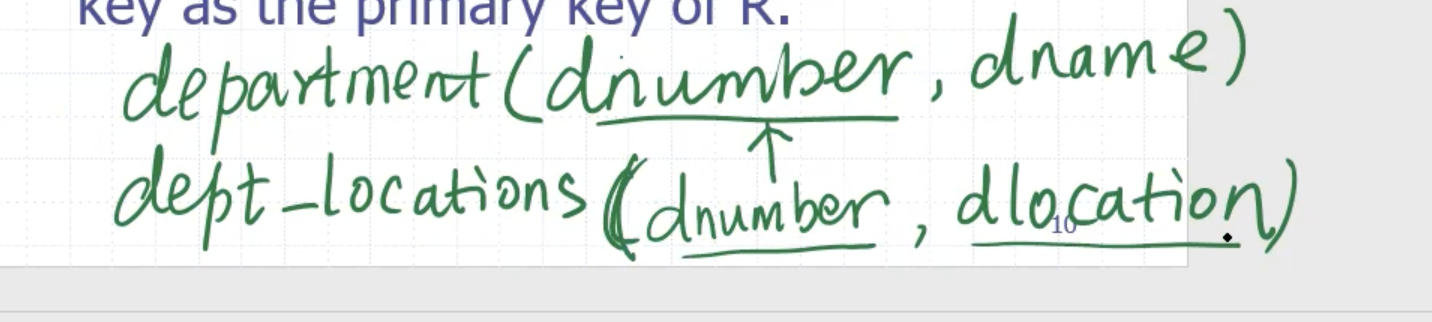 key as the primary key of R.
department(dnumber, dname)
dept_locations(dnumber, dlocation)
10